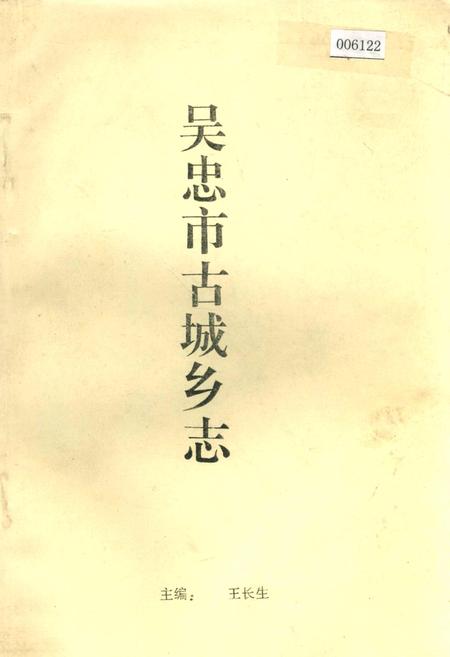 006122
吴忠市古城乡志
主编： 王长生